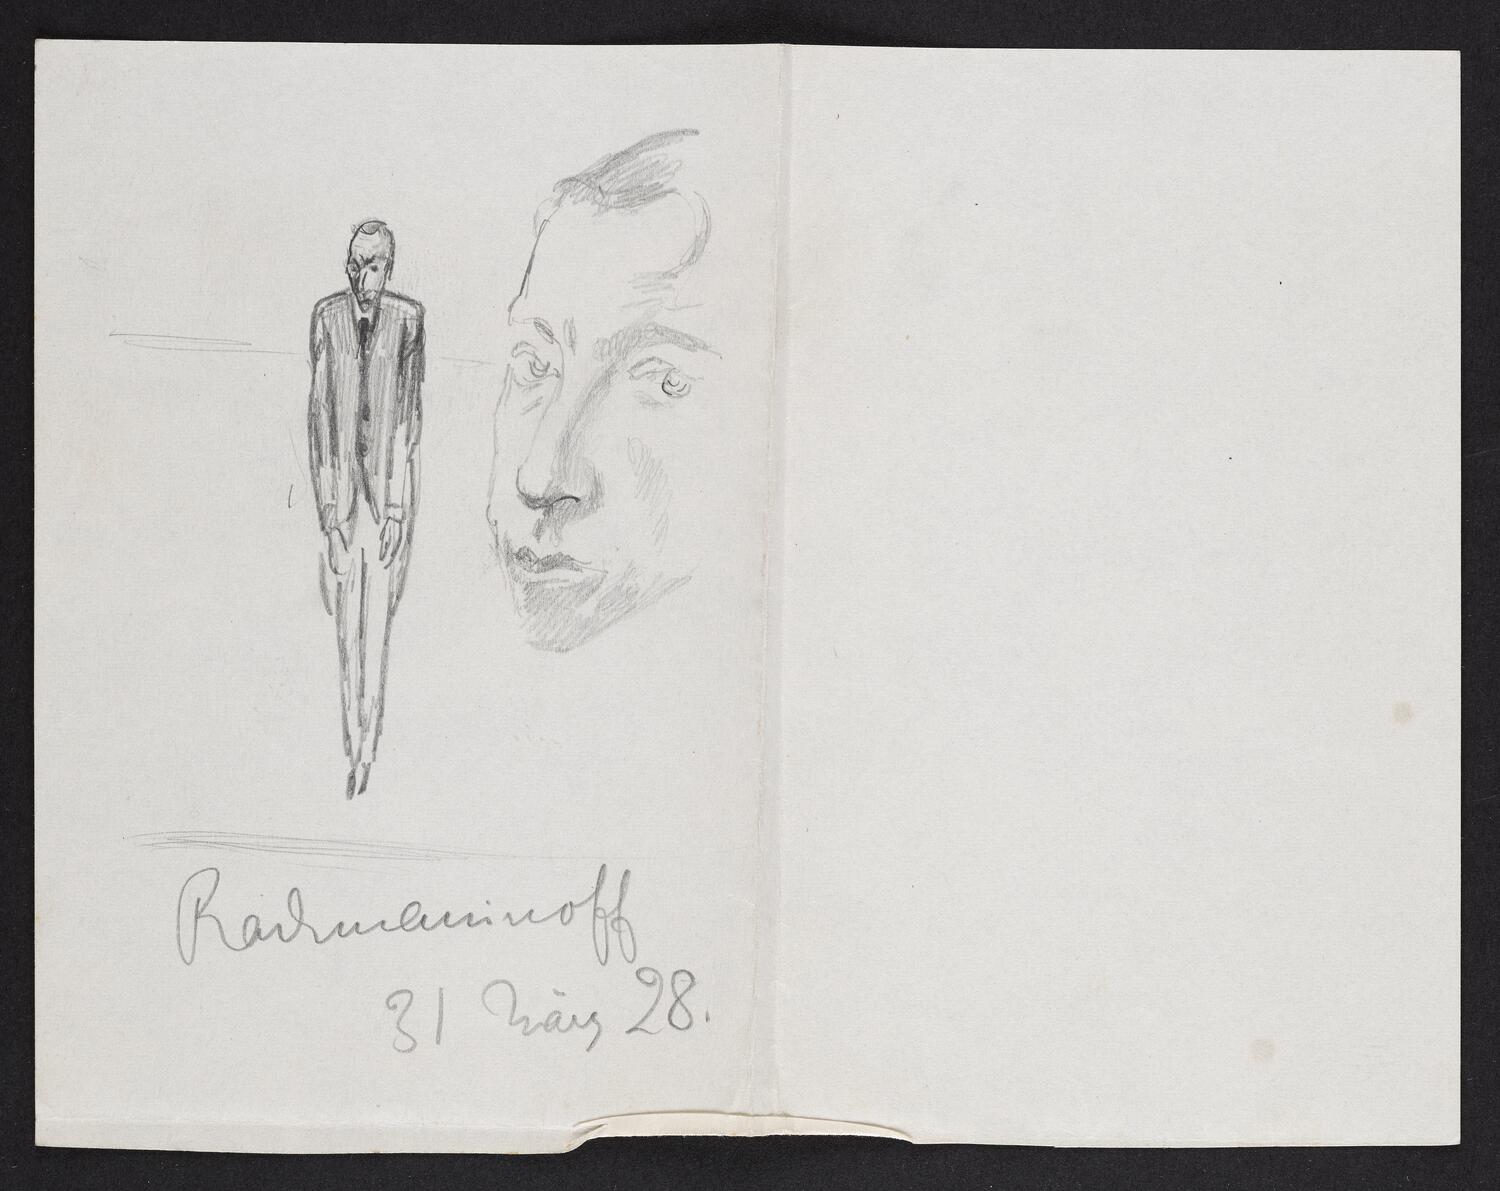 Rachmaninoff
31 März 28.